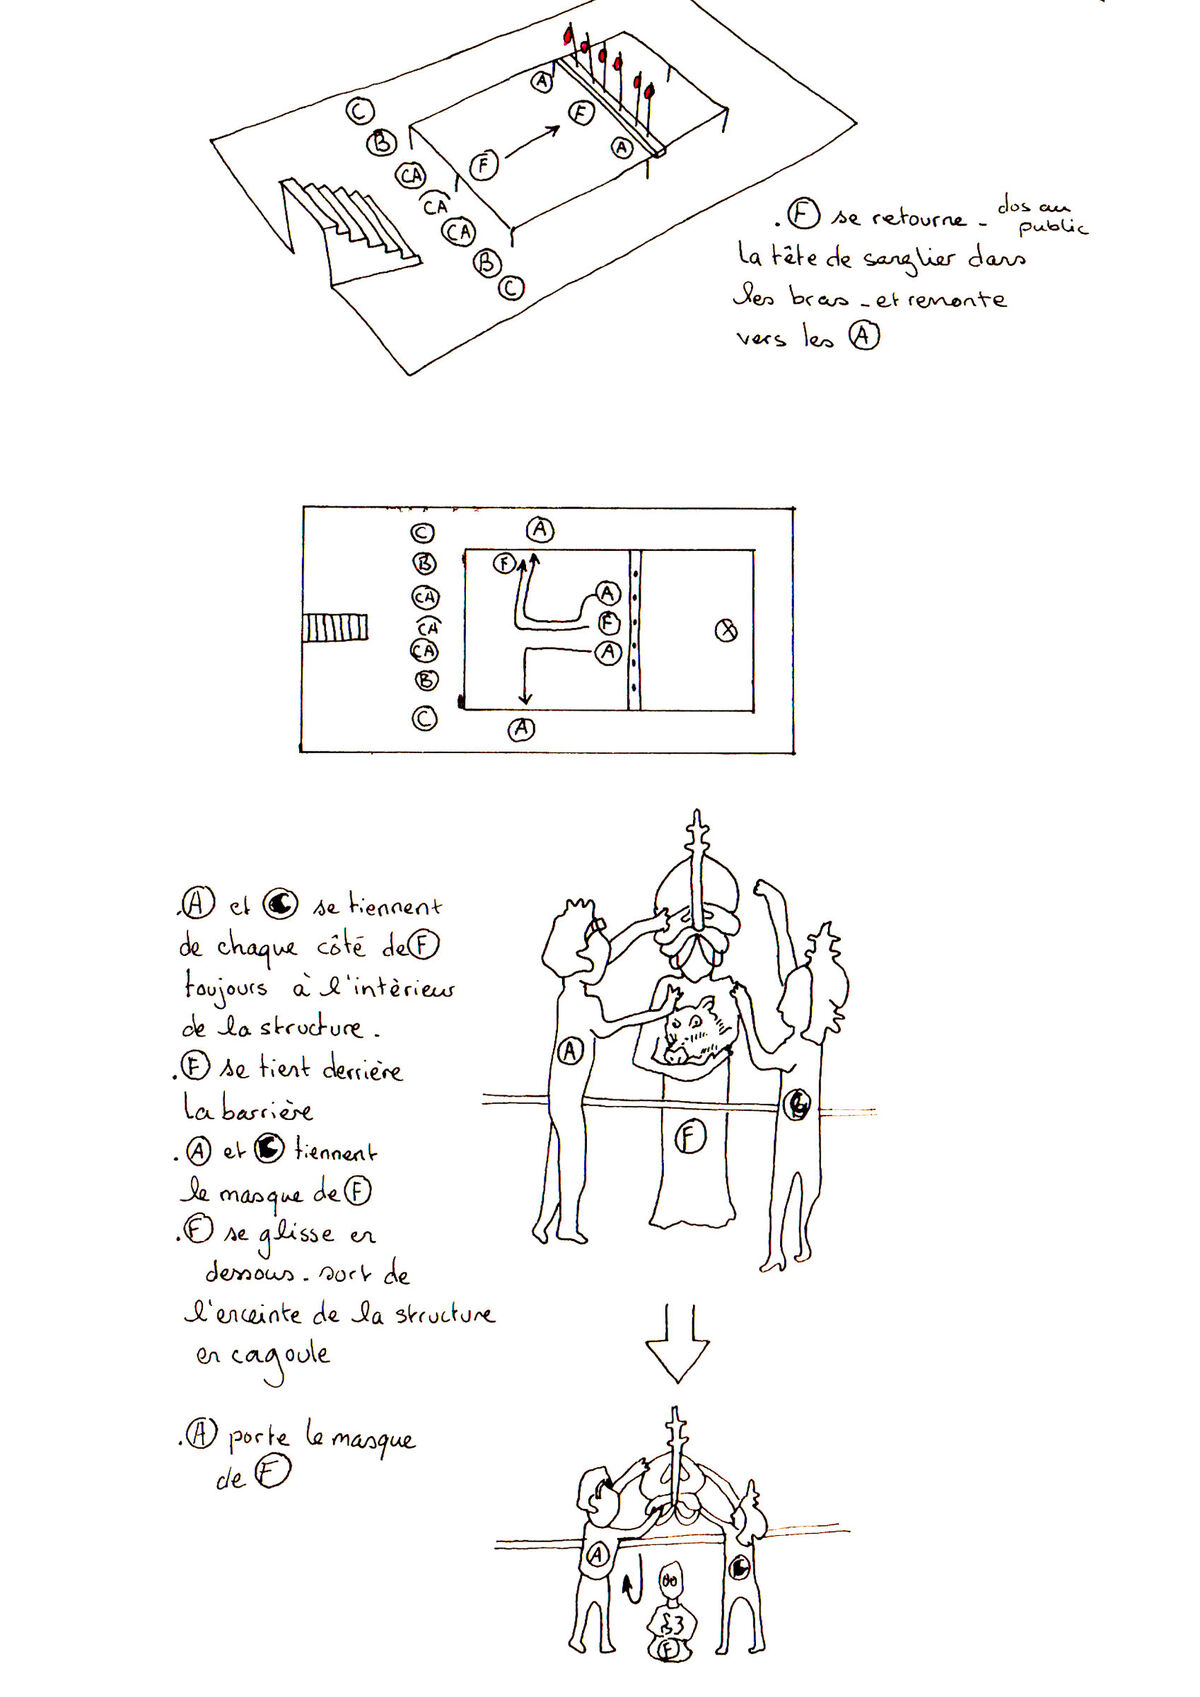 C
B
CA
CA
CA
B
C
F
A
F
A
. F se retourne - dos au
public
la tête de sanglier dans
les bras - et remonte
vers les A
C
B
CA
CA
CA
B
C
A
F
A
F
A
A
X
. A et C se tiennent
de chaque côté de F
toujours à l'intèrieur
de la structure.
. F se tient derrière
la barrière
. A et C tiennent
le masque de F
. F se glisse en
dessous - sort de
l'enceinte de la structure
en cagoule
. A porte le masque
de F
A
F
A
C
F